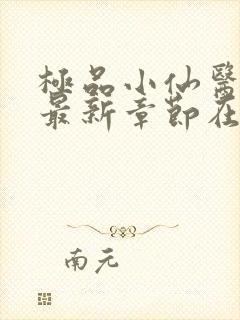 極品小仙醫
最新章節在
南元